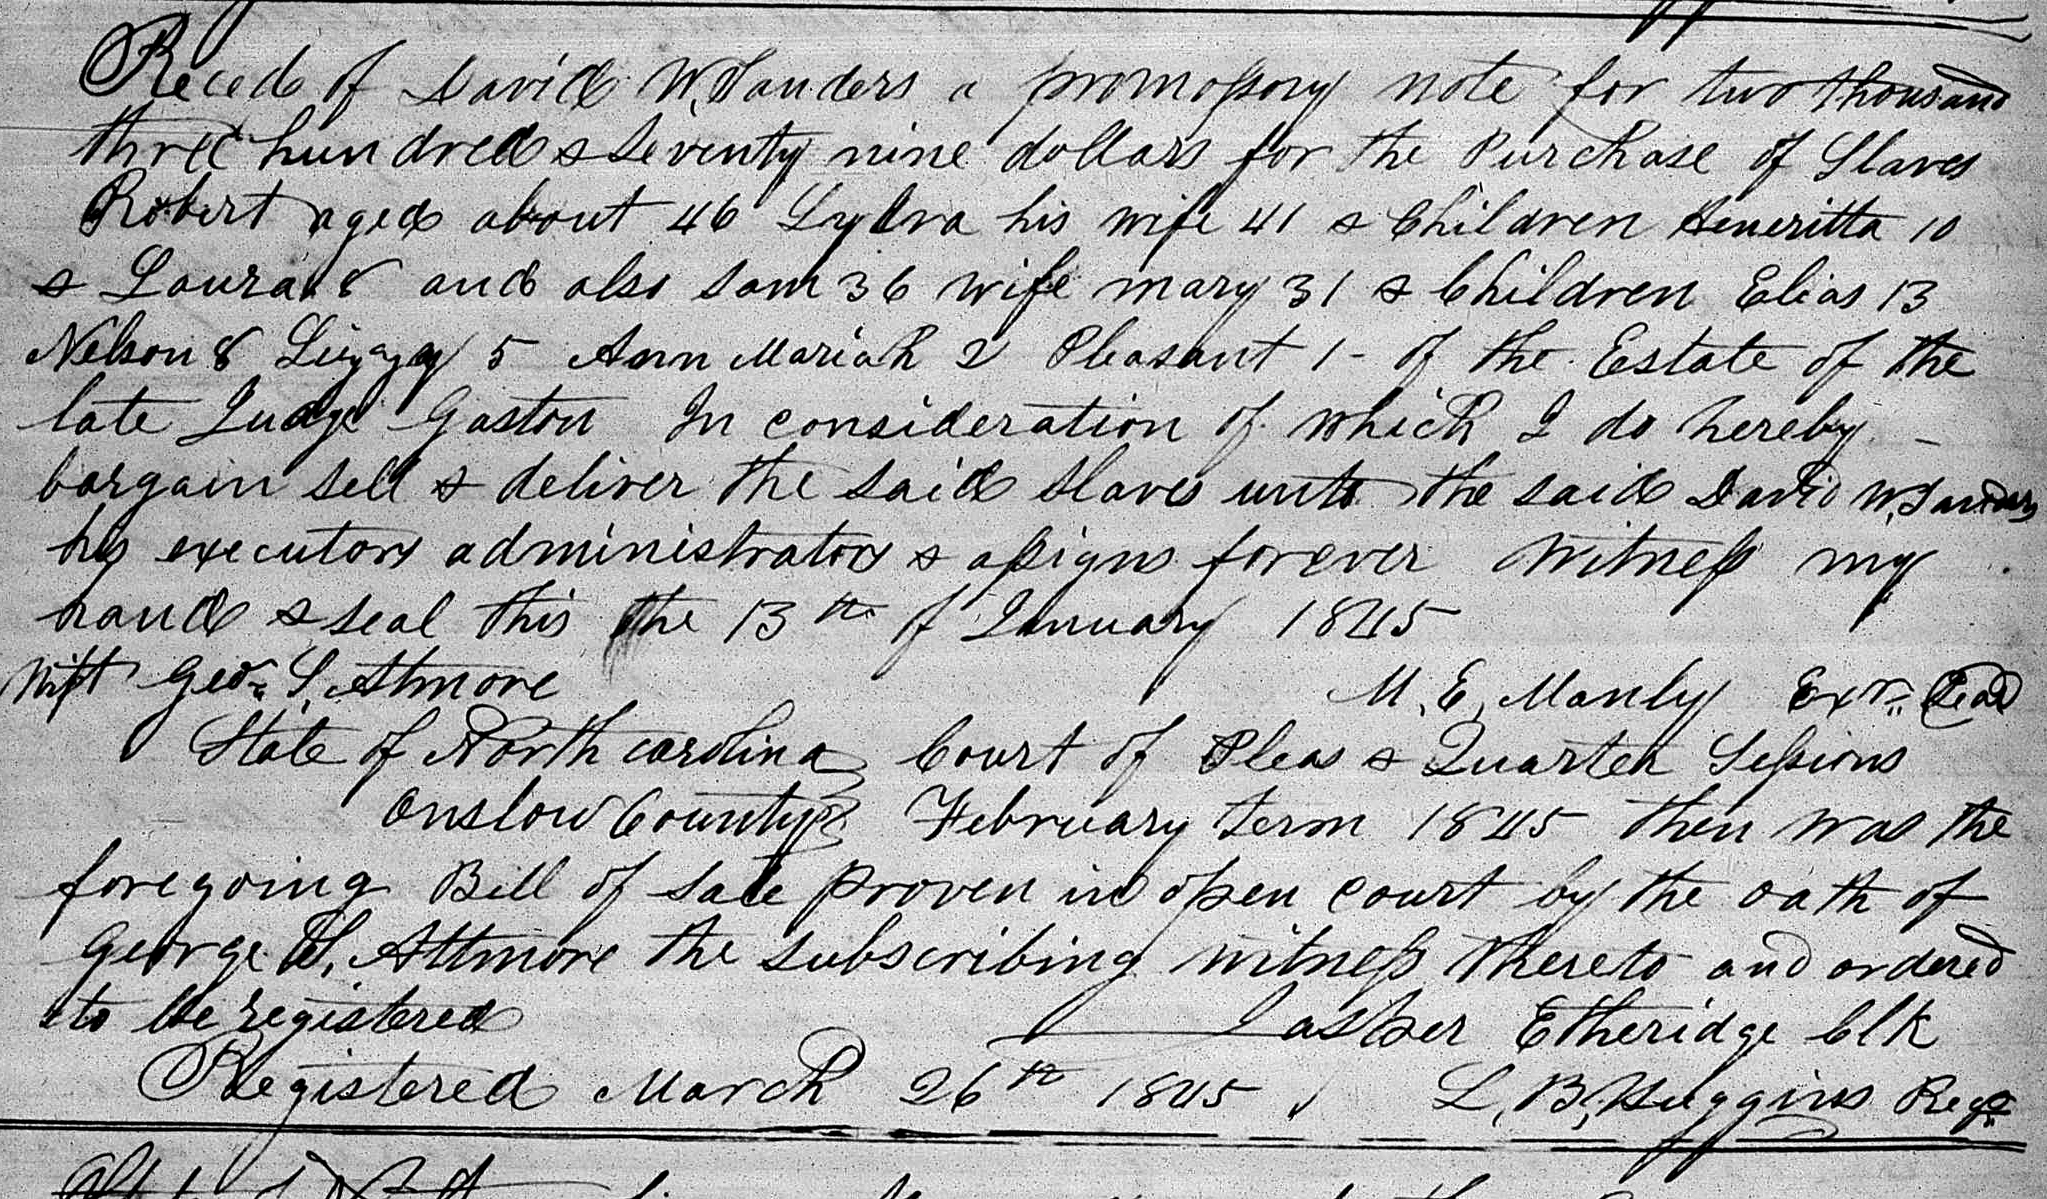 Reced of David W. Sanders a promossory note for two thousand
three hundred & Seventy nine dollars for the Purchase of Slaves
Robert aged about 46 Lydva his wife 41 & Children Heneritta 10
& Laura 8 and also Sam 36 wife mary 31 & Children Elias 13
Nelson 8 Lizzy 5 Ann Mariah 2 Pleasant 1 - of the Estate of the
late Judge Gaston In consideration of which I do hereby -
bargain sell & deliver the said Slaves unto the said David W. Sanders
his executors administrators & assigns forever Witness my
hand & seal this the 13th of January 1845
Witt Geo. S. Atmore M. E. Manly Exr. Seal
State of North carolina Court of Pleas & Quarter Sessions
Onslow County February Term 1845 then was the
foregoing Bill of Sale proven in open court by the oath of
George S. Attmore the subscribing witness thereto and ordered
to be registered Jasper Etheridge Clk
Registered March 26th 1845 L. B. Huggins Regr